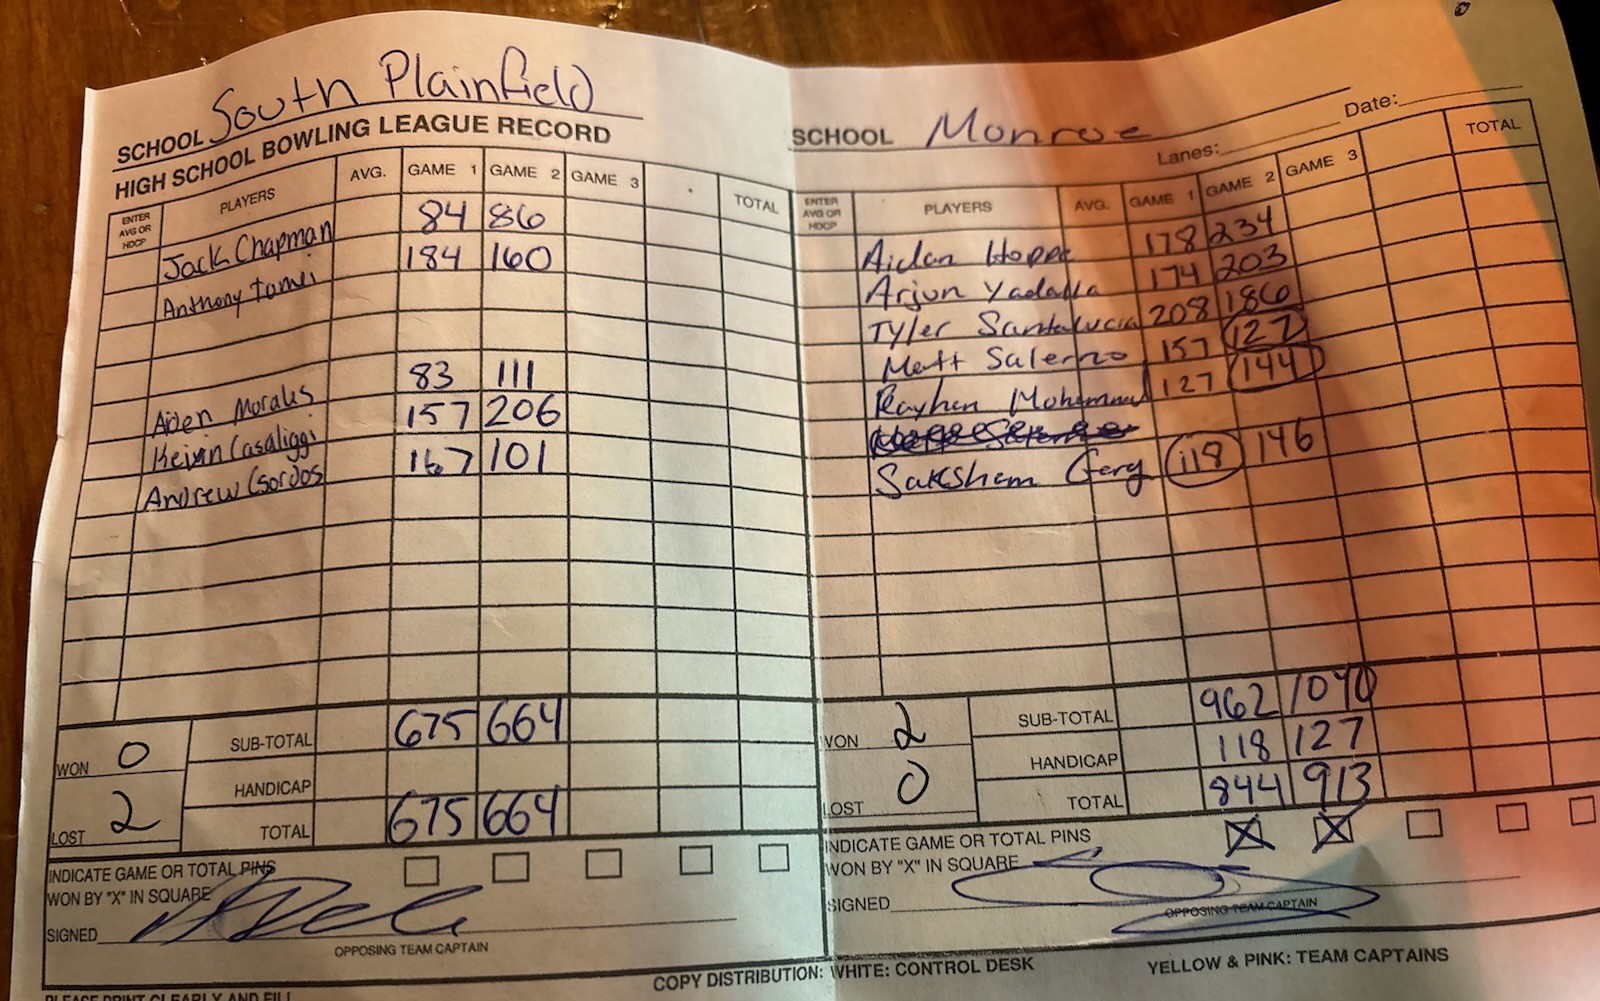 SCHOOL South Plainfield
HIGH SCHOOL BOWLING LEAGUE RECORD
ENTER AVG OR HDCP PLAYERS AVG. GAME 1 GAME 2 GAME 3 TOTAL
Jack Chapman 84 86
Anthony Tamei 184 160
Aiden Morales 83 111
Keivin Casaliggi 157 206
Andrew Gordos 167 101
WON 0 SUB-TOTAL 675 664
HANDICAP
LOST 2 TOTAL 675 664
INDICATE GAME OR TOTAL PINS
WON BY "X" IN SQUARE
SIGNED
OPPOSING TEAM CAPTAIN
SCHOOL Monroe Lanes: Date:
ENTER AVG OR HDCP PLAYERS AVG. GAME 1 GAME 2 GAME 3 TOTAL
Aidan Hoppe 178 234
Arjun Yadalla 174 203
Tyler Santalucia 208 186
Matt Salerno 157 127
Rayhan Mohammad 127 144
Saksham Garg 118 146
WON 2 SUB-TOTAL 962 1040
HANDICAP 118 127
LOST 0 TOTAL 844 913
INDICATE GAME OR TOTAL PINS
WON BY "X" IN SQUARE X X
SIGNED
OPPOSING TEAM CAPTAIN
COPY DISTRIBUTION: WHITE: CONTROL DESK YELLOW & PINK: TEAM CAPTAINS
PLEASE PRINT CLEARLY AND FILL